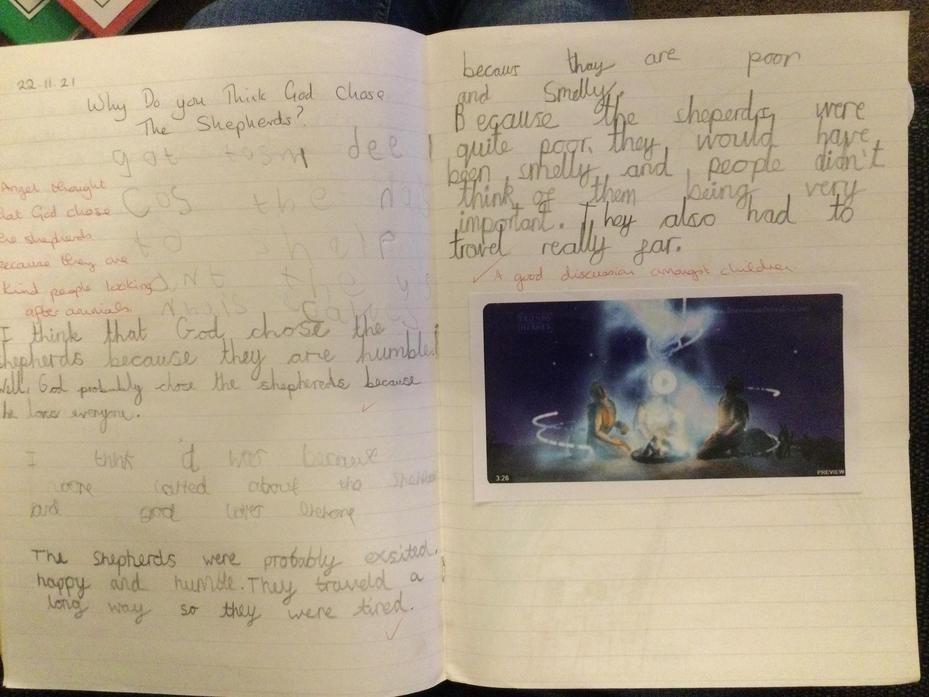 22.11.21
Why Do you Think God chose
The Shepherds?
got dee
Angel thought
that God chose
the shepherds
because they are
kind people looking
after animals.
Cos the
to help
I think that God chose the
shepherds because they are humble.
Well, God probably chose the shephereds because
he loves everyone.
I think d was because
about the
and god
The Shepherds were probably exsited,
happy and humble. They traveld a
long way so they were tired.
becaus thay are poor
and Smelly.
Because the sheperds were
quite poor, they would have
been smelly and people didn't
think of them being very
important. They also had to
travel really far.
A good discussion amongst children
3:26
PREVIEW